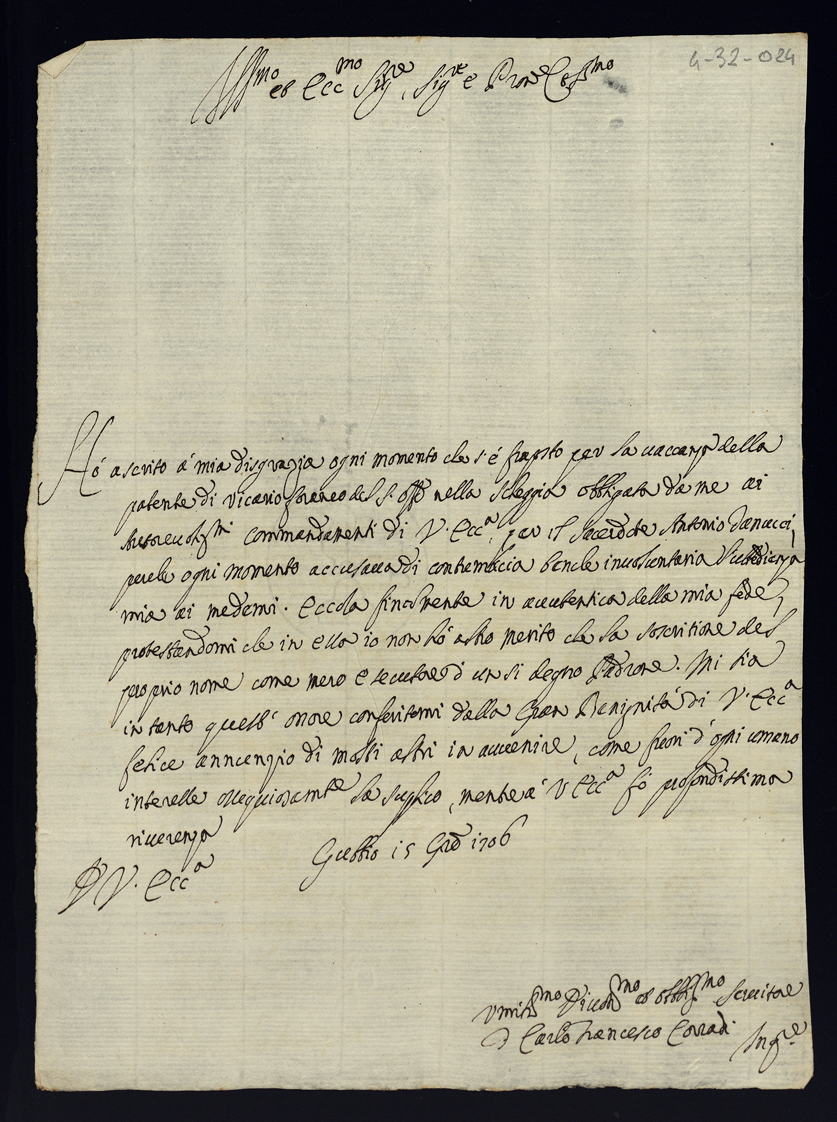 4-32-024
Ill.mo et Ecc.mo Sig.re, Sig.re e Pron.e Col.mo
Hó ascrito á mia disgrazia ogni momento che s'é fraposto per la uaccanza della
patente di Vicario foraneo del S. Off.o nella Scheggia obbligata da me ai
autoreuoliss.mi commandamenti di V. Ecc.a, per il Sacerdote Antonio
perche ogni momento accusaua di contumacia benche inuolontaria l'ubbidienza
mia ai medemi. Eccola finalmente in autentica della mia fede,
protestandomi che in essa io non hó altro merito che la soscritione del
proprio nome come mero esecutore d'un si degno Padrone. Mi sia
in tanto quest'onore conferitomi dalla Gran Benignitá di V. Ecc.a
felice annunzio di molti altri in auuenire, come fuori d'ogni umano
interesse ossequiosam.te la suplico, mentre á V Ecc.a fó profondissima
riuerenza
Di V. Ecc.a Gubbio 15 1706
Umiliss.mo Diuotiss.mo et obblig.mo Seruitore
Carlo Francesco Corradi Inq.re